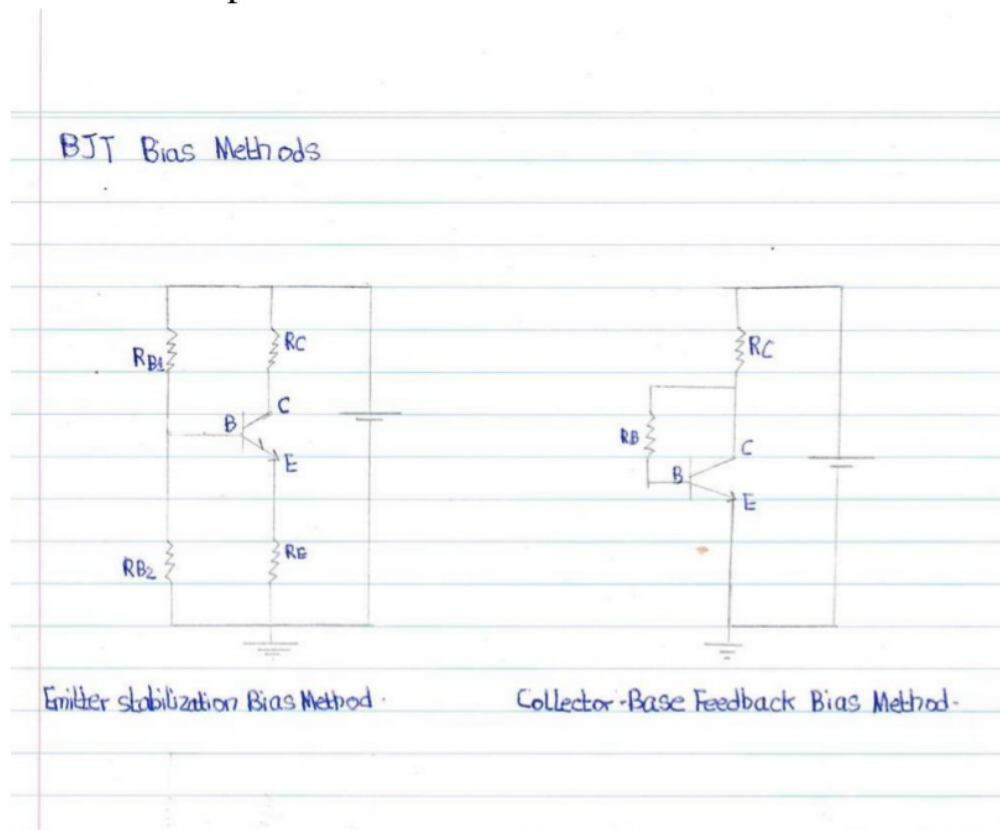 BJT Bias Methods
RB1
RC
B
C
E
RB2
RE
RC
RB
B
C
E
Emitter stabilization Bias Method.
Collector-Base Feedback Bias Method.